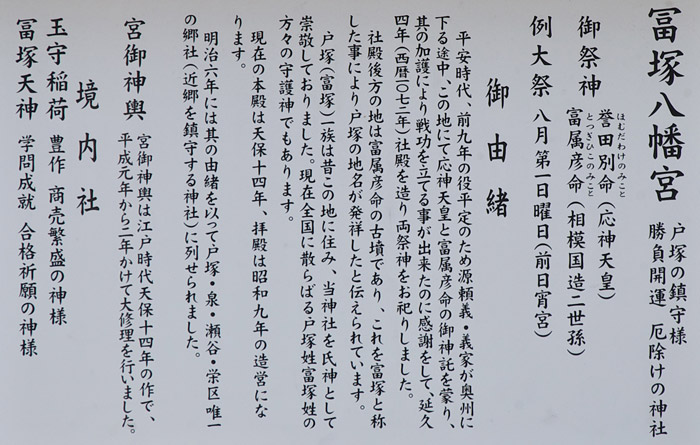 冨塚八幡宮
戸塚の鎮守様
勝負開運 厄除けの神社
御祭神
誉田別命(応神天皇)
ほむだわけのみこと
富属彦命(相模国造二世孫)
とつぎひこのみこと
例大祭 八月第一日曜日(前日宵宮)
御由緒
平安時代、前九年の役平定のため源頼義・義家が奥州に
下る途中、この地にて応神天皇と富属彦命の御神託を蒙り、
其の加護により戦功を立てる事が出来たのに感謝をして、延久
四年(西暦一〇七二年)社殿を造り両祭神をお祀りしました。
社殿後方の地は富属彦命の古墳であり、これを富塚と称
した事により戸塚の地名が発祥したと伝えられています。
戸塚(富塚)一族は昔この地に住み、当神社を氏神として
崇敬しておりました。現在全国に散らばる戸塚姓富塚姓の
方々の守護神でもあります。
現在の本殿は天保十四年、拝殿は昭和九年の造営にな
ります。
明治六年には其の由緒を以って戸塚・泉・瀬谷・栄区唯一
の郷社(近郷を鎮守する神社)に列せられました。
宮御神輿
宮御神輿は江戸時代天保十四年の作で、
平成元年から二年かけて大修理を行いました。
境内社
玉守稲荷 豊作 商売繁盛の神様
冨塚天神 学問成就 合格祈願の神様